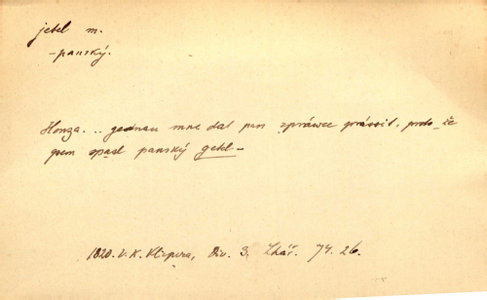 jetel m.
-panský.
Honza... gednau mne dal pan zpráwce práßit, proto že
gsem spasl panský getel -
1820. V. K. Klicpera, Div. 3. Lhář. 74. 26.